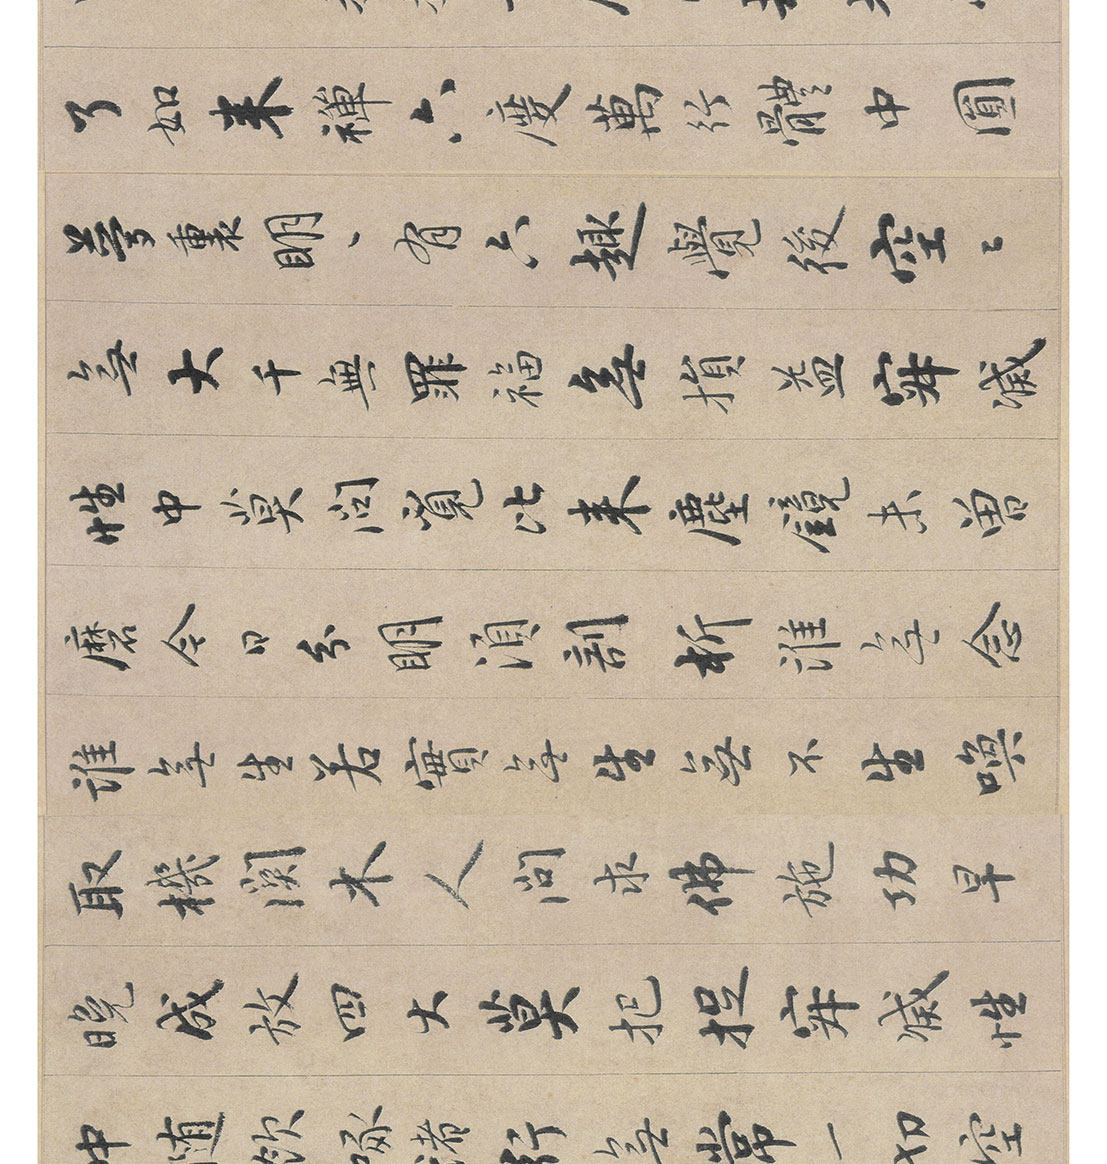 了如来禪六度萬行體中圓
夢裏明〻有六趣覺後空〻
無大千無罪福無損益寂滅
性中莫問覓比来塵鏡未曾
磨今日分明須剖析誰無念
誰無生若實無生無不生喚
取機関木人問求佛施功早
晚成放四大莫把捉寂滅性
中随飲啄諸行無常一切空